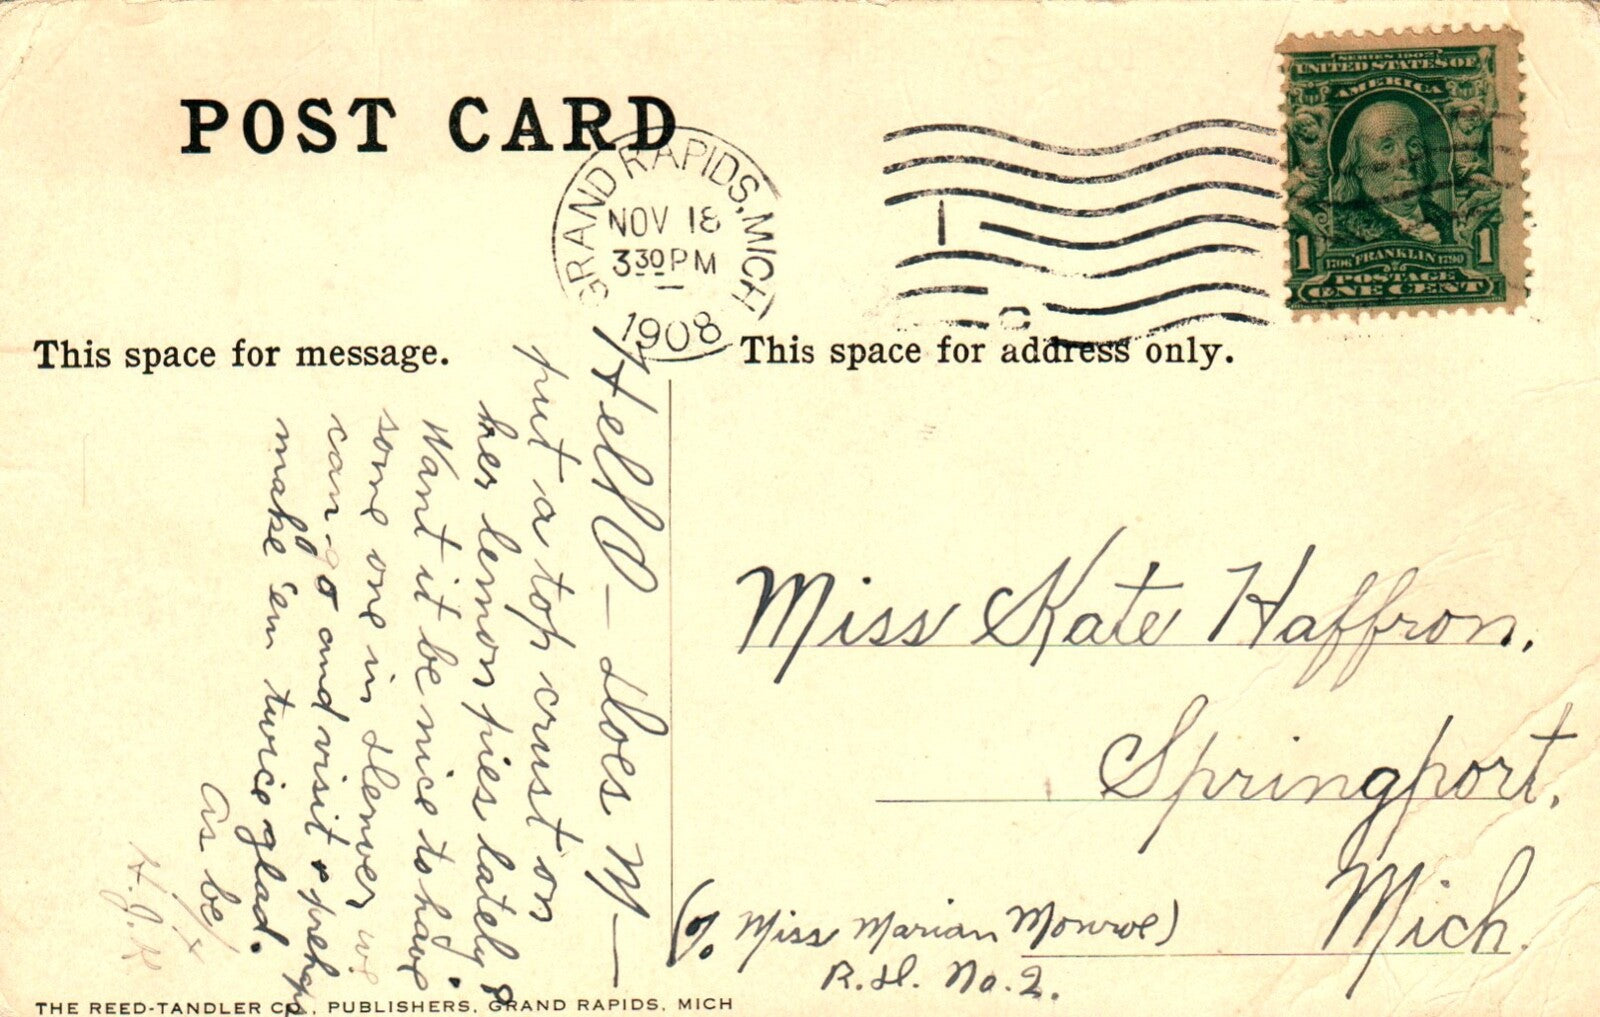 POST CARD
GRAND RAPIDS, MICH
NOV 18
3 30 PM
1908
SERIES 1902
UNITED STATES OF
AMERICA
1 1
1706 FRANKLIN 1790
POSTAGE
ONE CENT
This space for message.
This space for address only.
Hello - Does M—
put a top crust on
her lemon pies lately?
Want it be nice to have
some one in Denver we
can go and visit & prehaps
make 'em twice glad.
As be/4
Miss Kate Haffron,
Springport,
Mich.
(% Miss Marian Monroe)
R.D. No. 2.
THE REED-TANDLER CO., PUBLISHERS, GRAND RAPIDS, MICH